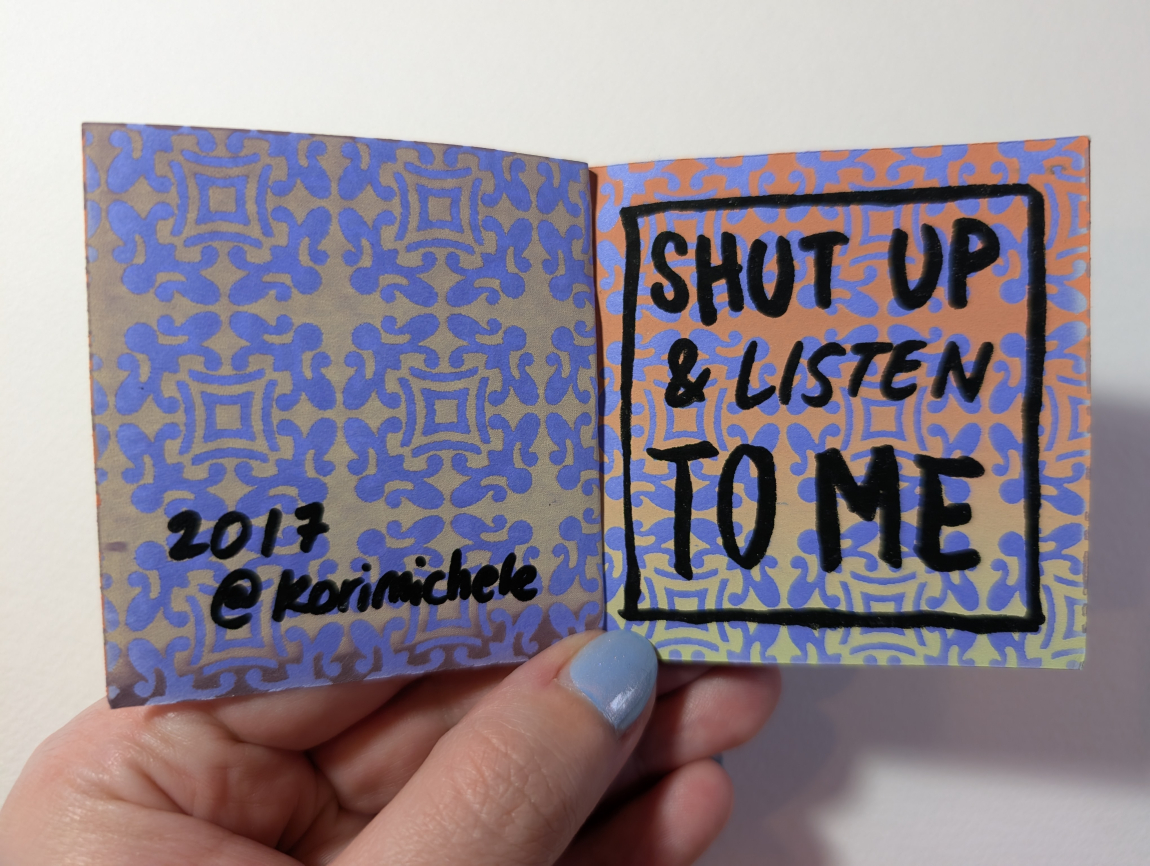 2017
@korimichele
SHUT UP
& LISTEN
TO ME